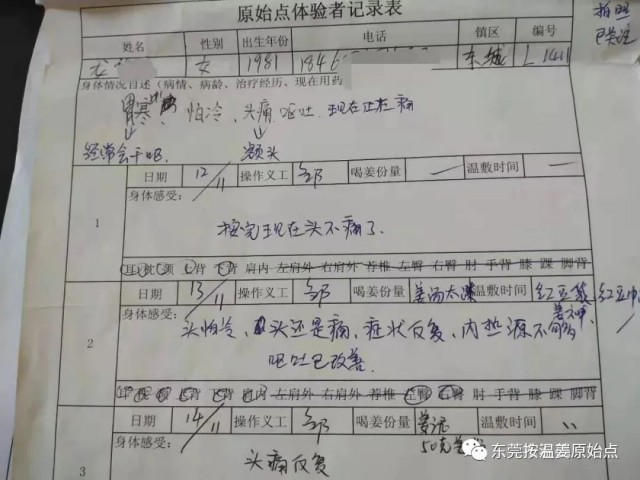 原始点体验者记录表
拍照
已关注
姓名 性别 出生年份 电话 镇区 编号
龙 女 1981 1846 东城 L1411
身体情况自述（病情、病龄、治疗经历、现在用药
胃寒 怕冷、头痛 呕吐 现在正在痛
经常会干呕 额头
日期 12/11 操作义工 邹 喝姜份量 一 温敷时间 一
身体感受：
1
按完现在头不痛了.
耳 枕 颈 上背 下背 肩内 左肩外 右肩外 荐椎 左臀 右臀 肘 手背 膝 踝 脚背
日期 13/11 操作义工 邹 喝姜份量 姜汤太 温敷时间 红豆袋 红豆
身体感受：
2
头怕冷, 头还是痛, 症状反复, 内热源不够
呕吐已改善.
肩内 左肩外 右肩外 荐椎 左臀 右臀 肘 手背 膝 踝 脚背
日期 14/11 操作义工 邹 喝姜份量 温敷时间
身体感受：
50克
3
头痛反复
东莞按温姜原始点